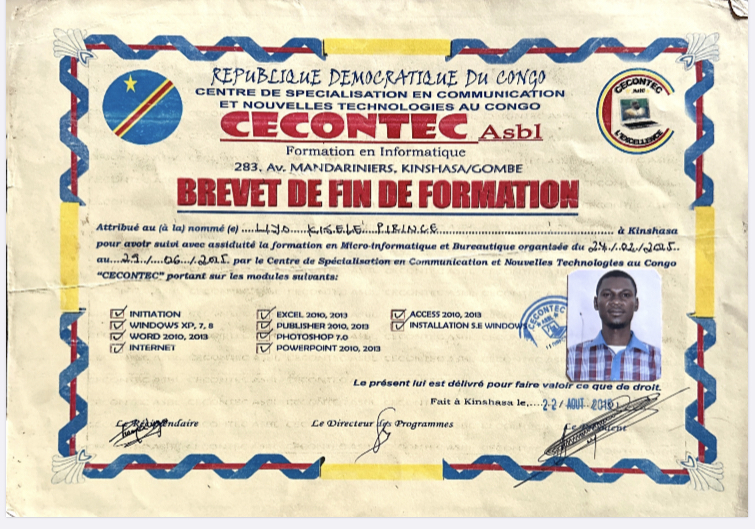 REPUBLIQUE DEMOCRATIQUE DU CONGO
CENTRE DE SPECIALISATION EN COMMUNICATION
ET NOUVELLES TECHNOLOGIES AU CONGO
CECONTEC Asbl
Formation en Informatique
283, Av. MANDARINIERS, KINSHASA/GOMBE
CECONTEC
Asbl
L'EXCELLENCE
BREVET DE FIN DE FORMATION
Attribué au (à la) nommé (e) LIYO KISELE PIRINCE à Kinshasa
pour avoir suivi avec assiduité la formation en Micro-informatique et Bureautique organisée du 24/02/2015
au 29/06/2015 par le Centre de Spécialisation en Communication et Nouvelles Technologies au Congo
"CECONTEC" portant sur les modules suivants:
INITIATION
WINDOWS XP, 7, 8
WORD 2010, 2013
INTERNET
EXCEL 2010, 2013
PUBLISHER 2010, 2013
PHOTOSHOP 7.0
POWERPOINT 2010, 2013
ACCESS 2010, 2013
INSTALLATION S.E WINDOWS
CECONTEC
Le présent lui est délivré pour faire valoir ce que de droit.
Fait à Kinshasa le, 22 AOUT
Le Récipiendaire
Le Directeur des Programmes
Le Président